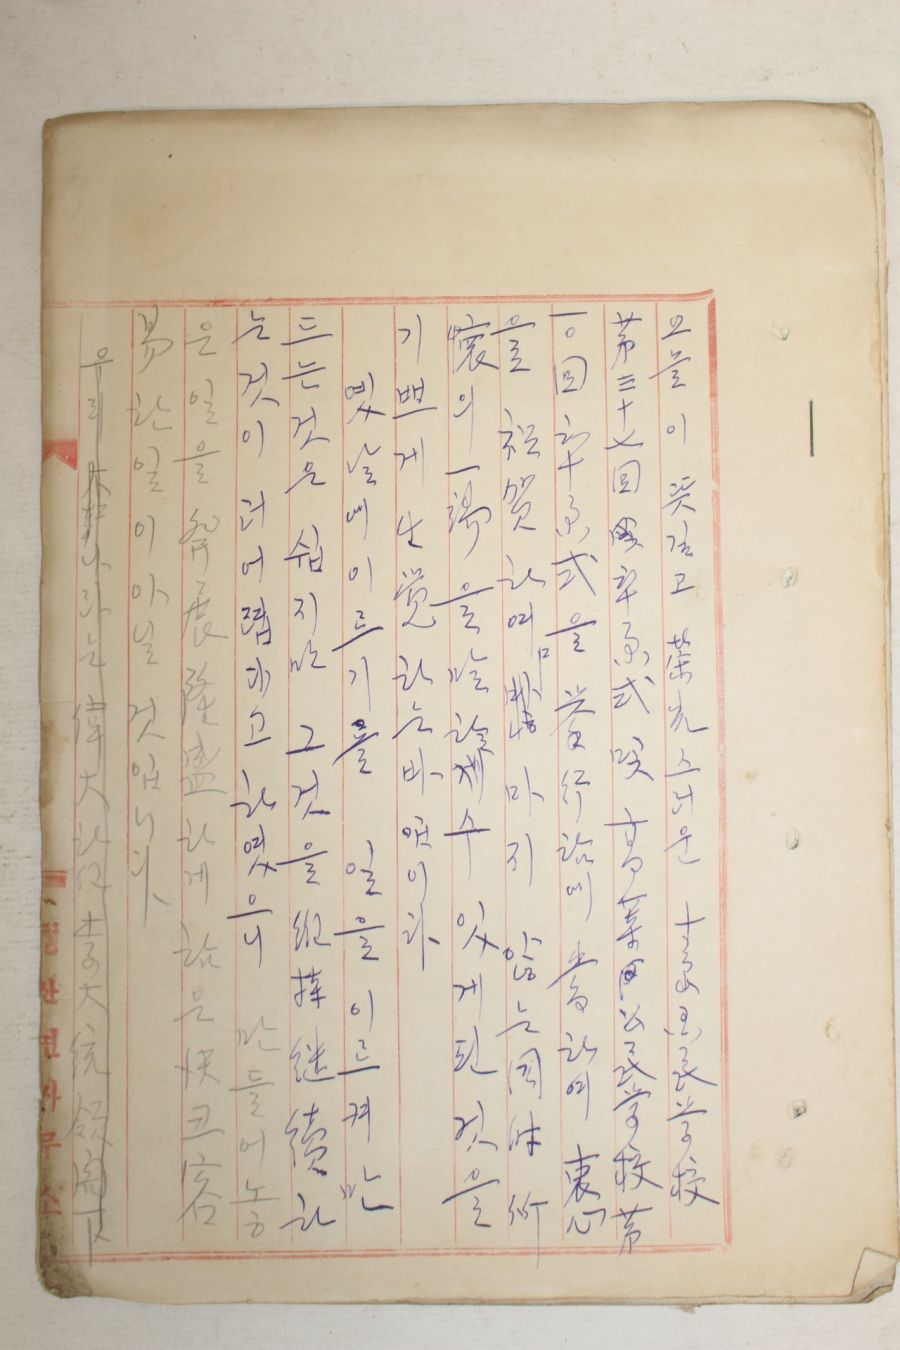 오늘이 뜻깊고 榮光스러운 國民学校
第三十七回 卒業式 및 高等公民学校 第
一〇回 卒業式을 挙行함에 當하여 衷心
을 祝賀하여 마지 않는 同時
懷의 一端을 말할 수 있게 된 것을
기쁘게 生覚하는바 입이다
옛날에 이르기를 일을 이르켜 만
드는 것은 쉽지만 그것을 維持 継續하
는 것이 더 어렵다고 하였으니 만들어 놓
은 일을 發展 隆盛하게 함은 決코 容
易한 일이 아닐 것입니다
우리나라는 偉大하신 李大統領閣下
면사무소